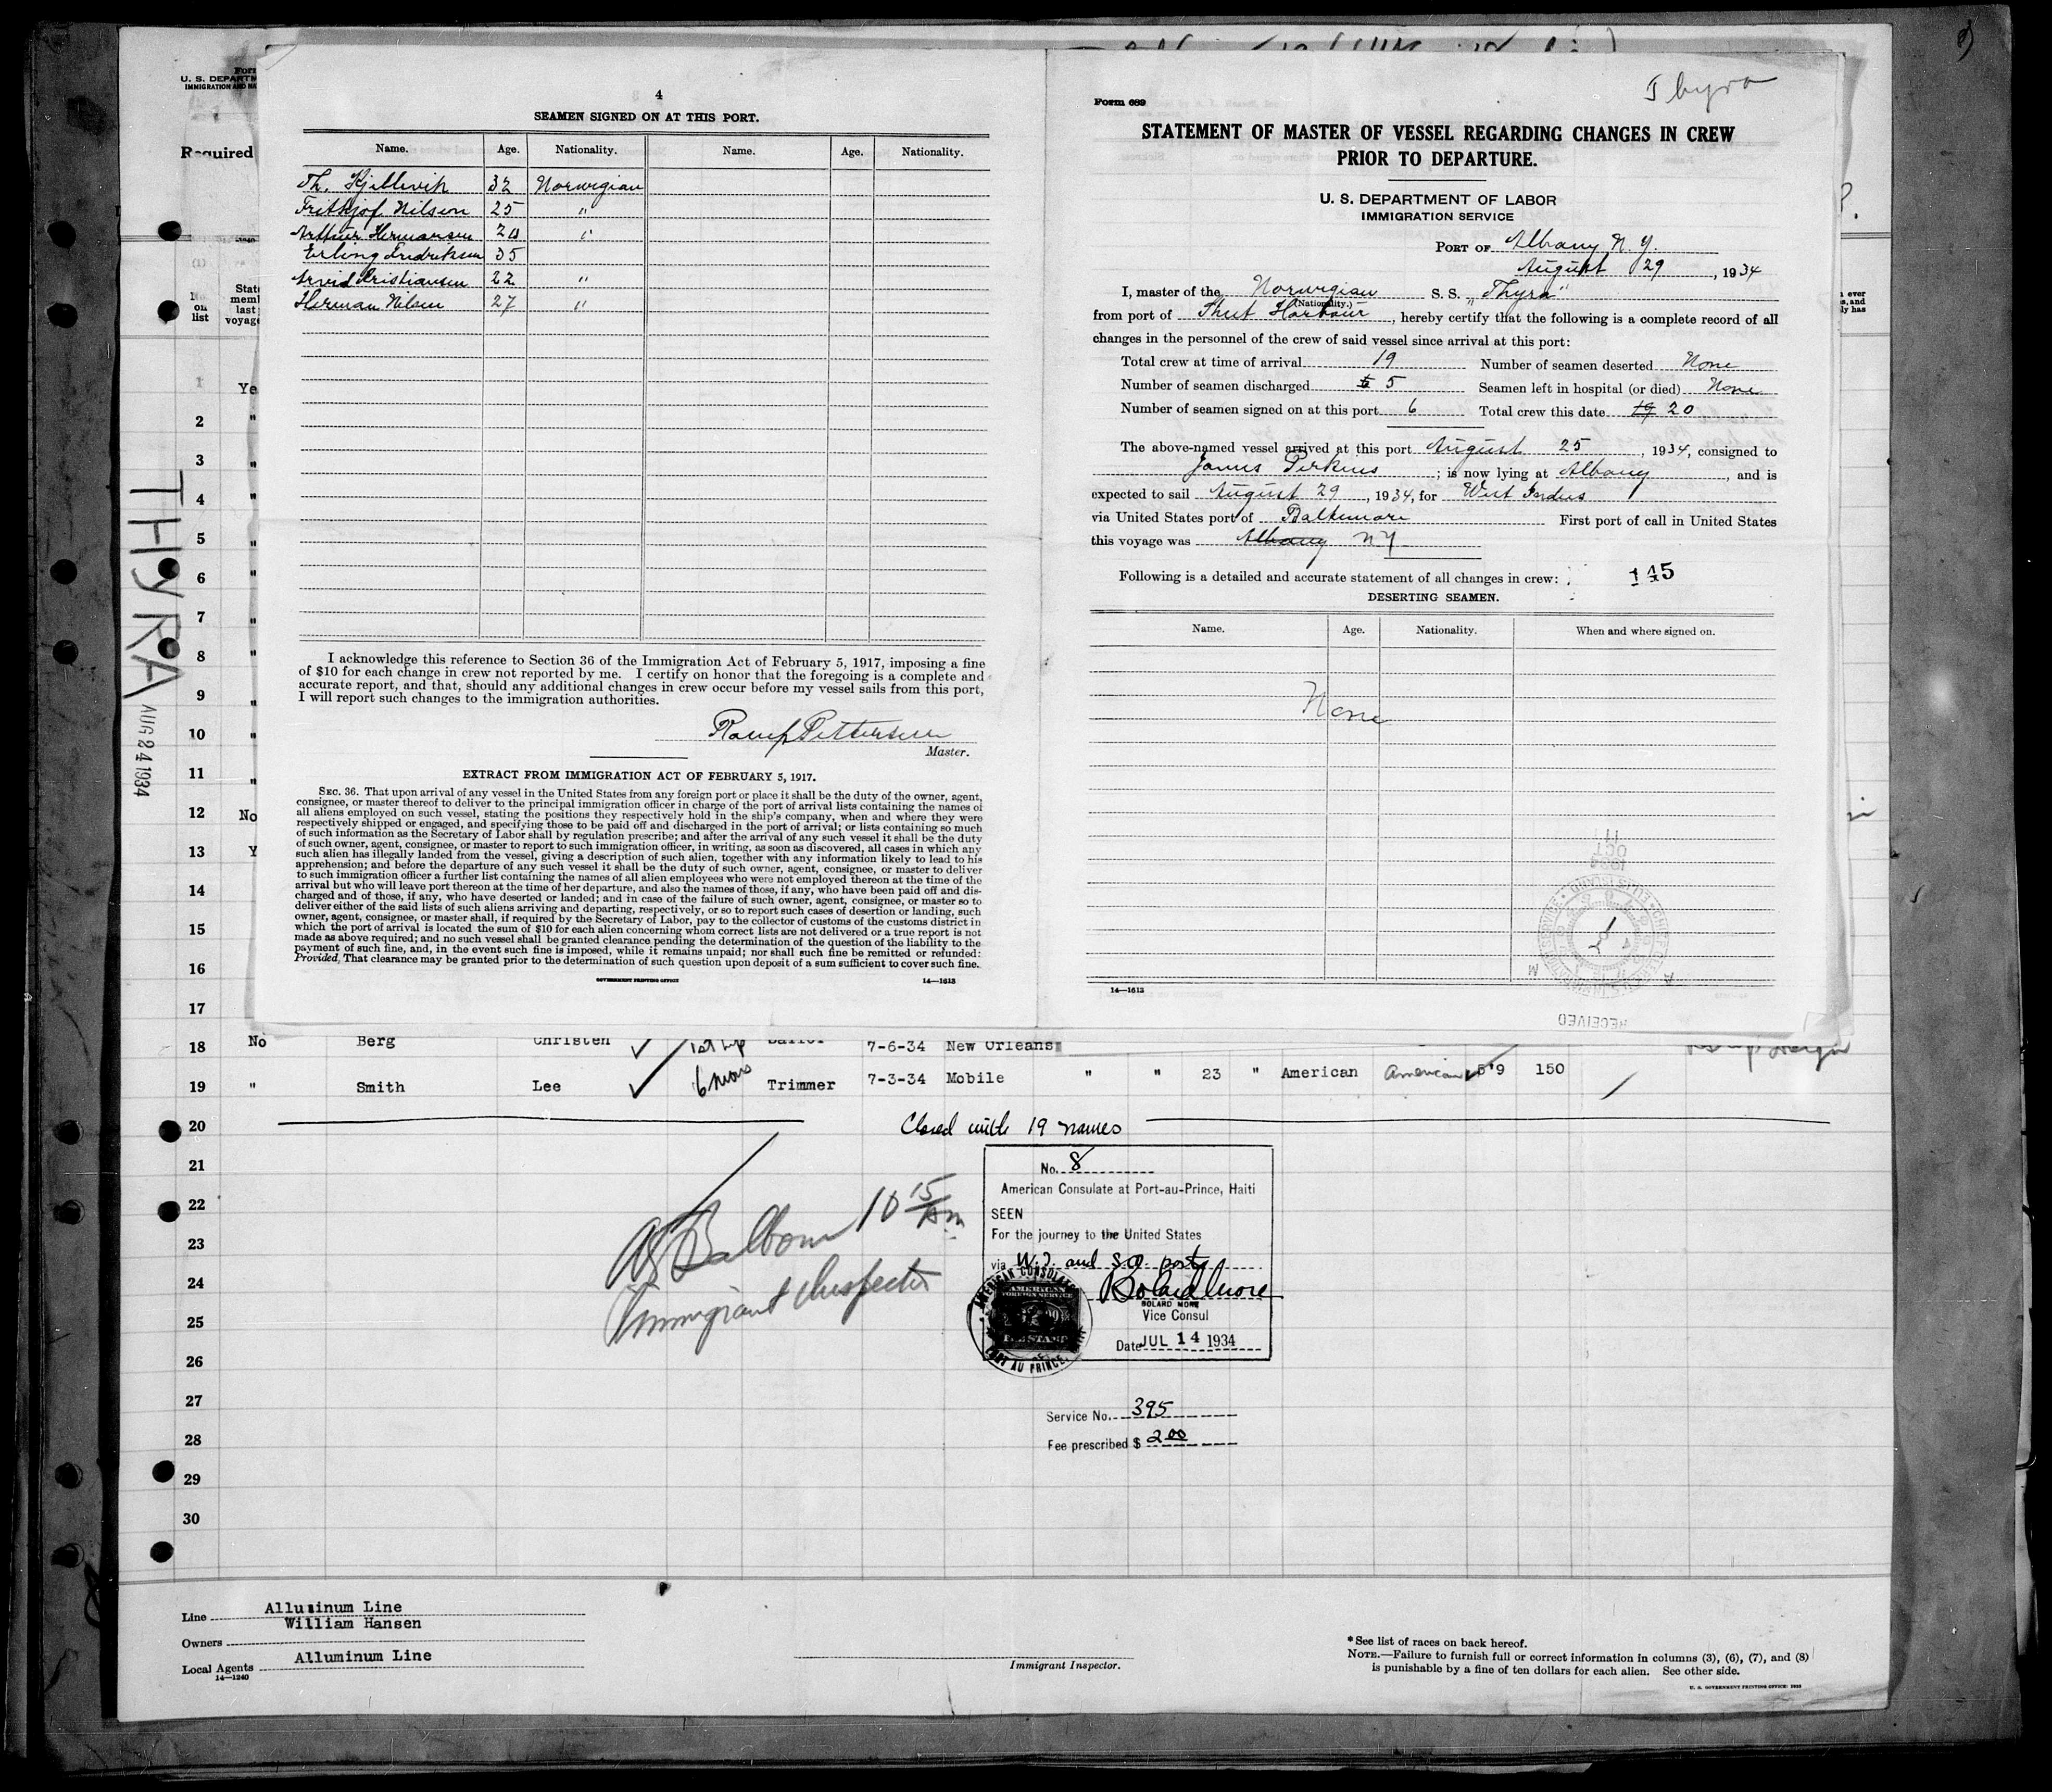 4
SEAMEN SIGNED ON AT THIS PORT.
Name. Age. Nationality. Name. Age. Nationality.
Th. Kjellevik 32 Norwegian
Fritkjof Nilsen 25 "
Arthur Hermansen "
Erling Fredriksen 35
Arvid Kristiansen 22 "
Herman Nilsen 27 "
I acknowledge this reference to Section 36 of the Immigration Act of February 5, 1917, imposing a fine
of $10 for each change in crew not reported by me. I certify on honor that the foregoing is a complete and
accurate report, and that, should any additional changes in crew occur before my vessel sails from this port,
I will report such changes to the immigration authorities.
Pettersen
Master.
EXTRACT FROM IMMIGRATION ACT OF FEBRUARY 5, 1917.
SEC. 36. That upon arrival of any vessel in the United States from any foreign port or place it shall be the duty of the owner, agent,
consignee, or master thereof to deliver to the principal immigration officer in charge of the port of arrival lists containing the names of
all aliens employed on such vessel, stating the positions they respectively hold in the ship's company, when and where they were
respectively shipped or engaged, and specifying those to be paid off and discharged in the port of arrival; or lists containing so much
of such information as the Secretary of Labor shall by regulation prescribe; and after the arrival of any such vessel it shall be the duty
of such owner, agent, consignee, or master to report to such immigration officer, in writing, as soon as discovered, all cases in which any
such alien has illegally landed from the vessel, giving a description of such alien, together with any information likely to lead to his
apprehension; and before the departure of any such vessel it shall be the duty of such owner, agent, consignee, or master to deliver
to such immigration officer a further list containing the names of all alien employees who were not employed thereon at the time of the
arrival but who will leave port thereon at the time of her departure, and also the names of those, if any, who have been paid off and dis-
charged and of those, if any, who have deserted or landed; and in case of the failure of such owner, agent, consignee, or master so to
deliver either of the said lists of such aliens arriving and departing, respectively, or so to report such cases of desertion or landing, such
owner, agent, consignee, or master shall, if required by the Secretary of Labor, pay to the collector of customs of the customs district in
which the port of arrival is located the sum of $10 for each alien concerning whom correct lists are not delivered or a true report is not
made as above required; and no such vessel shall be granted clearance pending the determination of the question of the liability to the
payment of such fine, and, in the event such fine is imposed, while it remains unpaid; nor shall such fine be remitted or refunded:
Provided, That clearance may be granted prior to the determination of such question upon deposit of a sum sufficient to cover such fine.
GOVERNMENT PRINTING OFFICE 14—1613
Thyra
Form 689
STATEMENT OF MASTER OF VESSEL REGARDING CHANGES IN CREW
PRIOR TO DEPARTURE.
U. S. DEPARTMENT OF LABOR
IMMIGRATION SERVICE
PORT OF Albany N. Y.
August 29, 1934
I, master of the Norwegian S. S. "Thyra"
(Nationality.)
from port of Harbour, hereby certify that the following is a complete record of all
changes in the personnel of the crew of said vessel since arrival at this port:
Total crew at time of arrival 19 Number of seamen deserted None
Number of seamen discharged 5 Seamen left in hospital (or died) None
Number of seamen signed on at this port 6 Total crew this date 19 20
The above-named vessel arrived at this port August 25, 1934, consigned to
James Perkins; is now lying at Albany, and is
expected to sail August 29, 1934, for West Indies
via United States port of Baltimore First port of call in United States
this voyage was Albany N Y
Following is a detailed and accurate statement of all changes in crew: 145
DESERTING SEAMEN.
Name. Age. Nationality. When and where signed on.
None
14—1613
1934
OCT
11
RECEIVED
U. S. DEPARTM
IMMIGRATION AND NA
Required
THYRA
AUG 24 1934
(1)
No. on list
State
mem
last
voyage
1 Ye
2 "
3 "
4 "
5 "
6 "
7 "
8 "
9 "
10 "
11 "
12 No
13 Y
14
15
16
17
18 No Berg Christen 1st trip Sailor 7-6-34 New Orleans
19 " Smith Lee 6 mos Trimmer 7-3-34 Mobile " " 23 " American American 5'9 150
20 Closed with 19 names
21
22
23
24
25
26
27
28
29
30
10 15/am
Immigrant Inspector
No. 8
American Consulate at Port-au-Prince, Haiti
SEEN
For the journey to the United States
via W.I. and S.A. ports
Bolard More
BOLARD MORE
Vice Consul
Date JUL 14 1934
AMERICAN CONSULATE
AMERICAN
FOREIGN SERVICE
FEE STAMP
PORT AU PRINCE
Service No. 395
Fee prescribed $ 2.00
Line Alluminum Line
William Hansen
Owners
Local Agents Alluminum Line
14—1240
Immigrant Inspector.
*See list of races on back hereof.
NOTE.—Failure to furnish full or correct information in columns (3), (6), (7), and (8)
is punishable by a fine of ten dollars for each alien. See other side.
U. S. GOVERNMENT PRINTING OFFICE: 1933